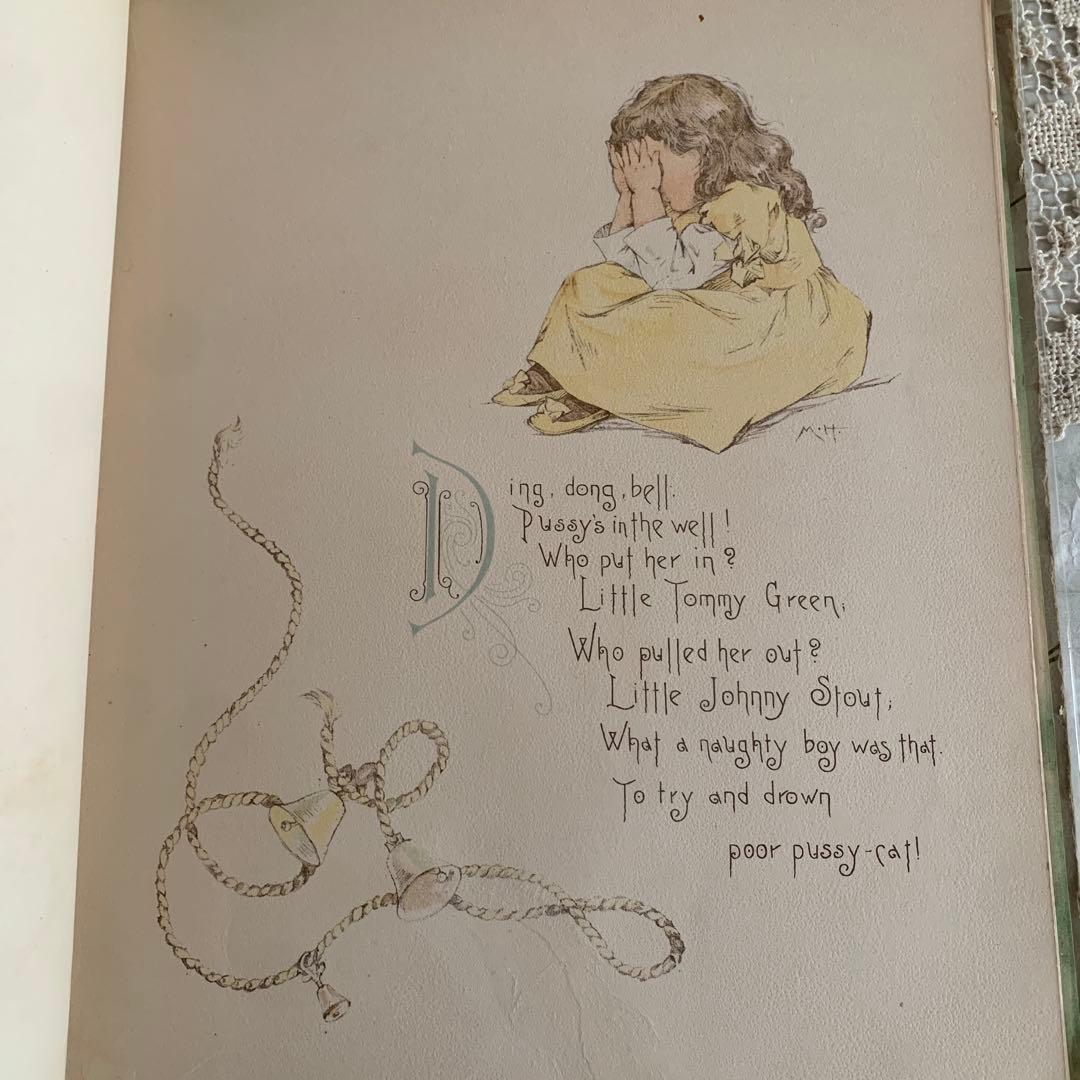 M.H.
Ding, dong, bell.
Pussy's in the well!
Who put her in?
Little Tommy Green,
Who pulled her out?
Little Johnny Stout;
What a naughty boy was that.
To try and drown
poor pussy-cat!